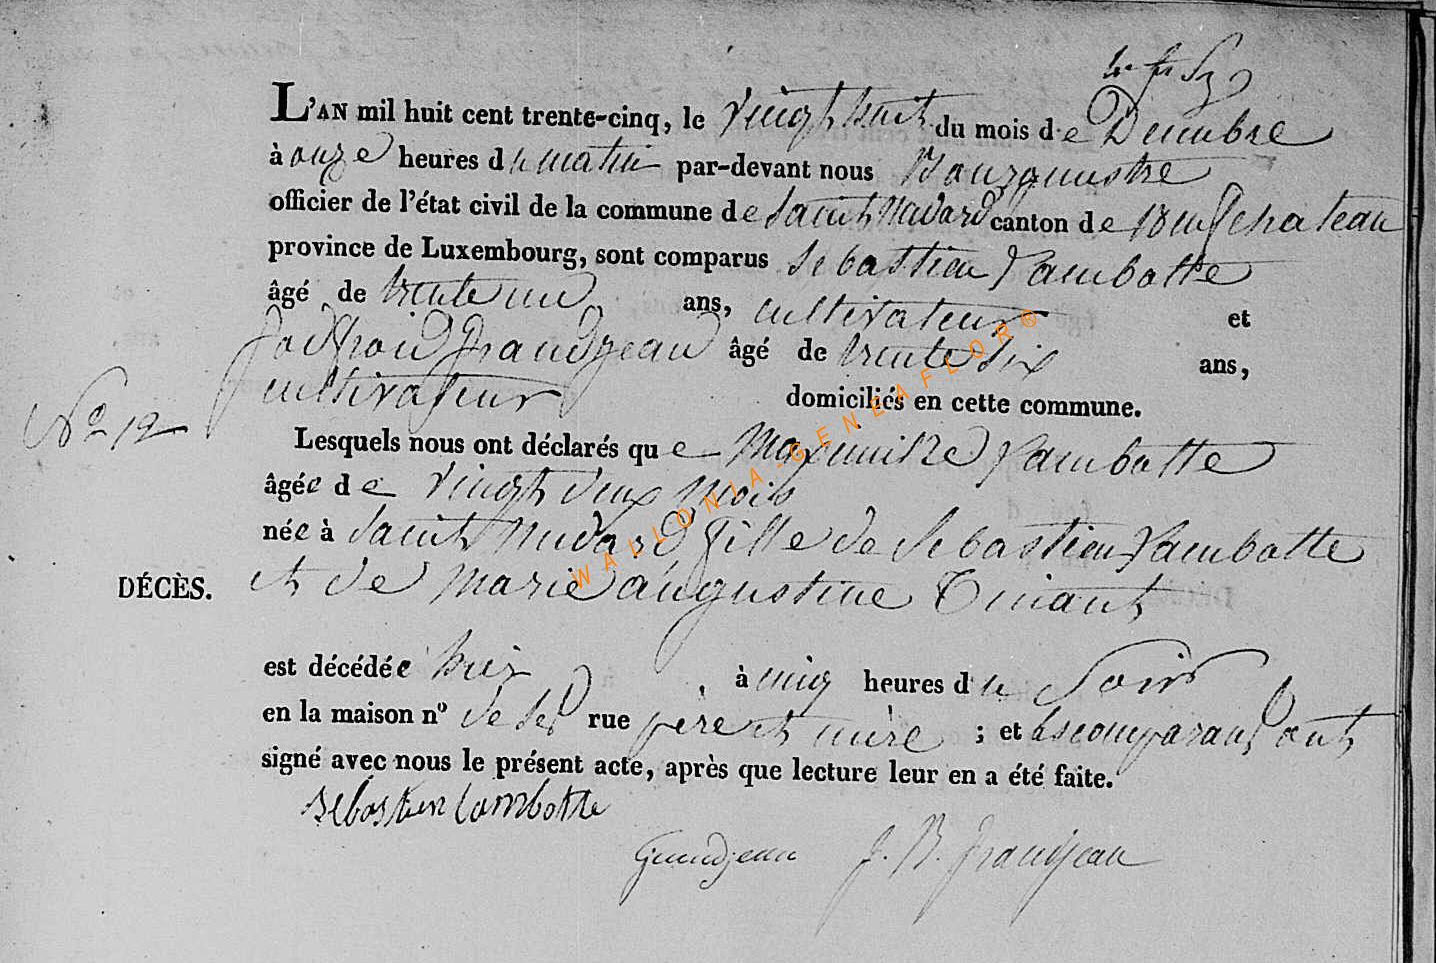 L'AN mil huit cent trente-cinq, le vingt huit du mois de Decembre
à onze heures du matin par-devant nous Bourguestre
officier de l'état civil de la commune de Saint Medard canton de Neufchateau
province de Luxembourg, sont comparus Sebastien Lambotte
âgé de trente un ans, cultivateur et
Godfroid Grandjean âgé de trente six ans,
cultivateur domiciliés en cette commune.
No 12
Lesquels nous ont déclarés que Lambotte
âgée de vingt deux mois
née à Saint Medard fille de Sebastien Lambotte
DÉCÈS. et de Marie augustine Tinant
est décédée hier, à cinq heures du Soir
en la maison nº de ses rue père et mère ; et les comparans ont
signé avec nous le présent acte, après que lecture leur en a été faite.
sebastien lambotte
Grandjean J. B. Grandjean
WALLONIA-GENEAFLOR®